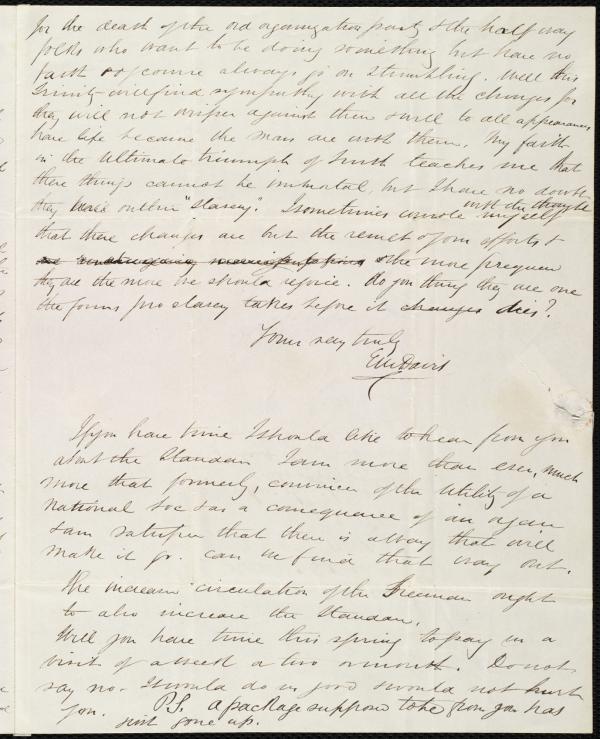 for the death of the old organization party & the half way
folks who want to be doing something but have no
faith of course always go on stumbling. Well this
Trinity will find sympathy with all the changes for
they will not oppose against them & will to all appearances
have life because the mass are with them. My faith
in the ultimate triumph of Truth teaches me that
these things cannot be immortal, but I have no doubt
they will outlive "slavery". I sometimes console myself
with the thought
that these changes are but the result of our efforts &
the more frequent
they are the more we should rejoice. do you think they are one
of the forms pro slavery takes before it changes dies?
Yours very truly
EM Davis
If you have time I should like to hear from you
about the Standard I am more than ever, much
more than formerly, convinced of the utility of a
National Soc & as a consequence of an organ
& am satisfied that there is a way that will
make it go. can we find that way out.
The increased circulation of the Freeman ought
to also increase the Standard.
Will you have time this spring to pay us a
visit of a week or two or month. Do not
say no. It would do us good & would not hurt
you. P.S. a package supposed to be from you has
just gone up.